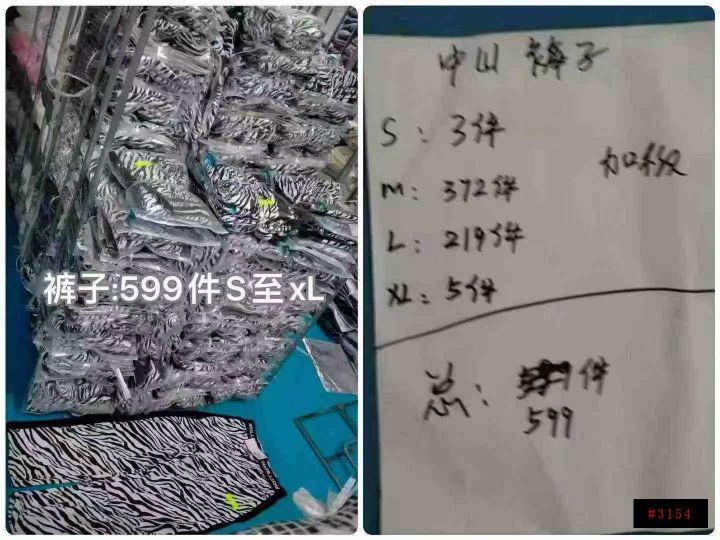 裤子:599件S至xL
中山 裤子
S：3件
加不及
M：372件
L：219件
XL：5件
总：件
599
#3154